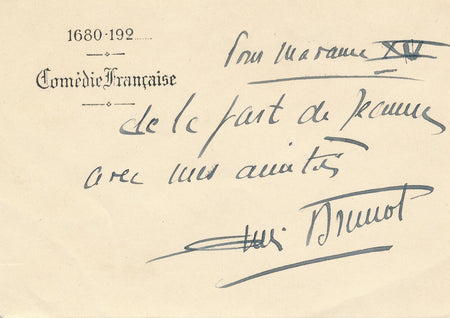 1680-192
Comédie Française
Pour Madame
de la part de Jeanne
avec mes amitiés
Brunot